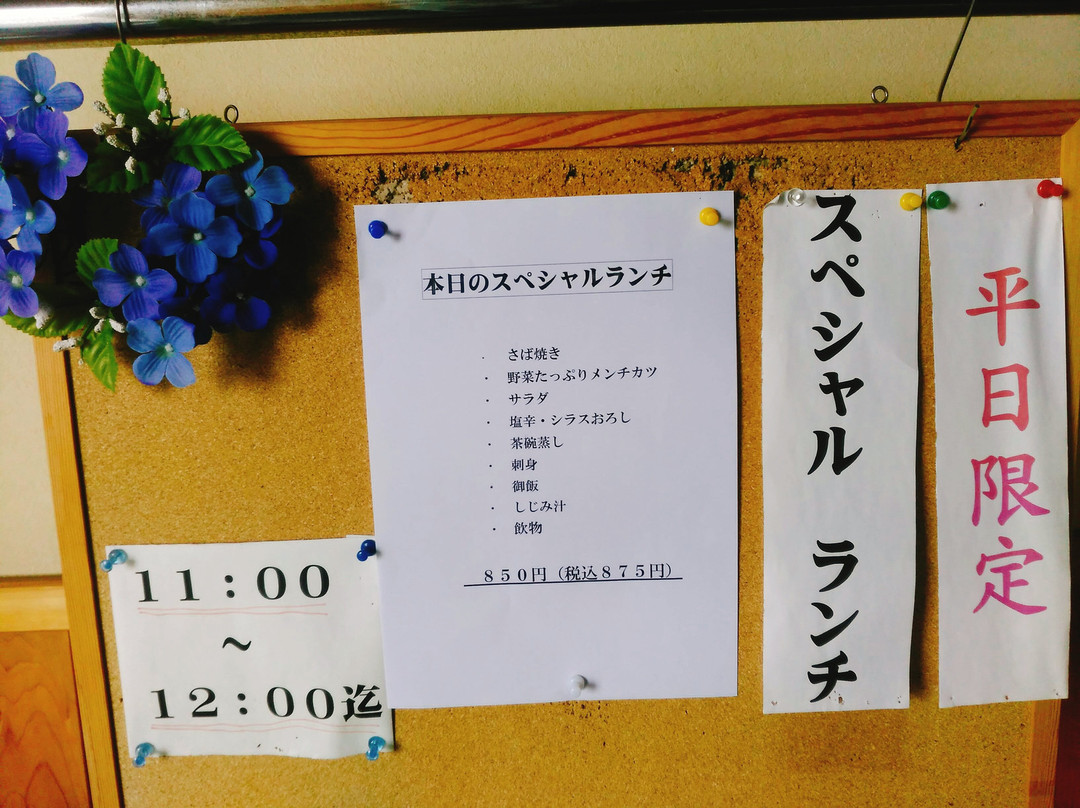 本日のスペシャルランチ
・ さば焼き
・ 野菜たっぷりメンチカツ
・ サラダ
・ 塩辛・シラスおろし
・ 茶碗蒸し
・ 刺身
・ 御飯
・ しじみ汁
・ 飲物
８５０円（税込８７５円）
スペシャル ランチ
平日限定
１１：００
～
１２：００迄